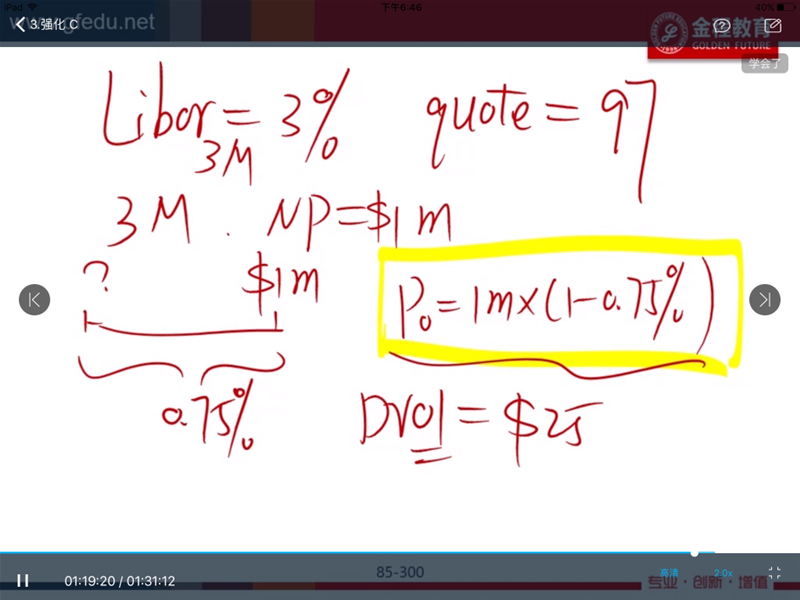 iPad 下午6:46 40%
www. gfedu.net
3.强化 C
金程教育
GOLDEN FUTURE
学会了
Libor = 3% quote = 97
3M
3M . NP = $1m
? $1m
P₀ = 1m × (1 - 0.75%)
0.75%
DV01 = $25
85-300
01:19:20 / 01:31:12
高清 2.0x
专业·创新·增值